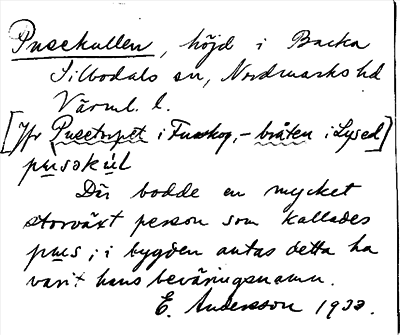 Pusekullen, höjd i Backa
Silbodals sn, Nordmarks hd
Värml. l.
[Jfr Pusetorpet i Fuxkog, – bråten i Lysed]
pusəkúl
Där bodde en mycket
storväxt person som kallades
pus; i bygden antas detta ha
varit hans beväringsnamn.
E. Andersson 1933.